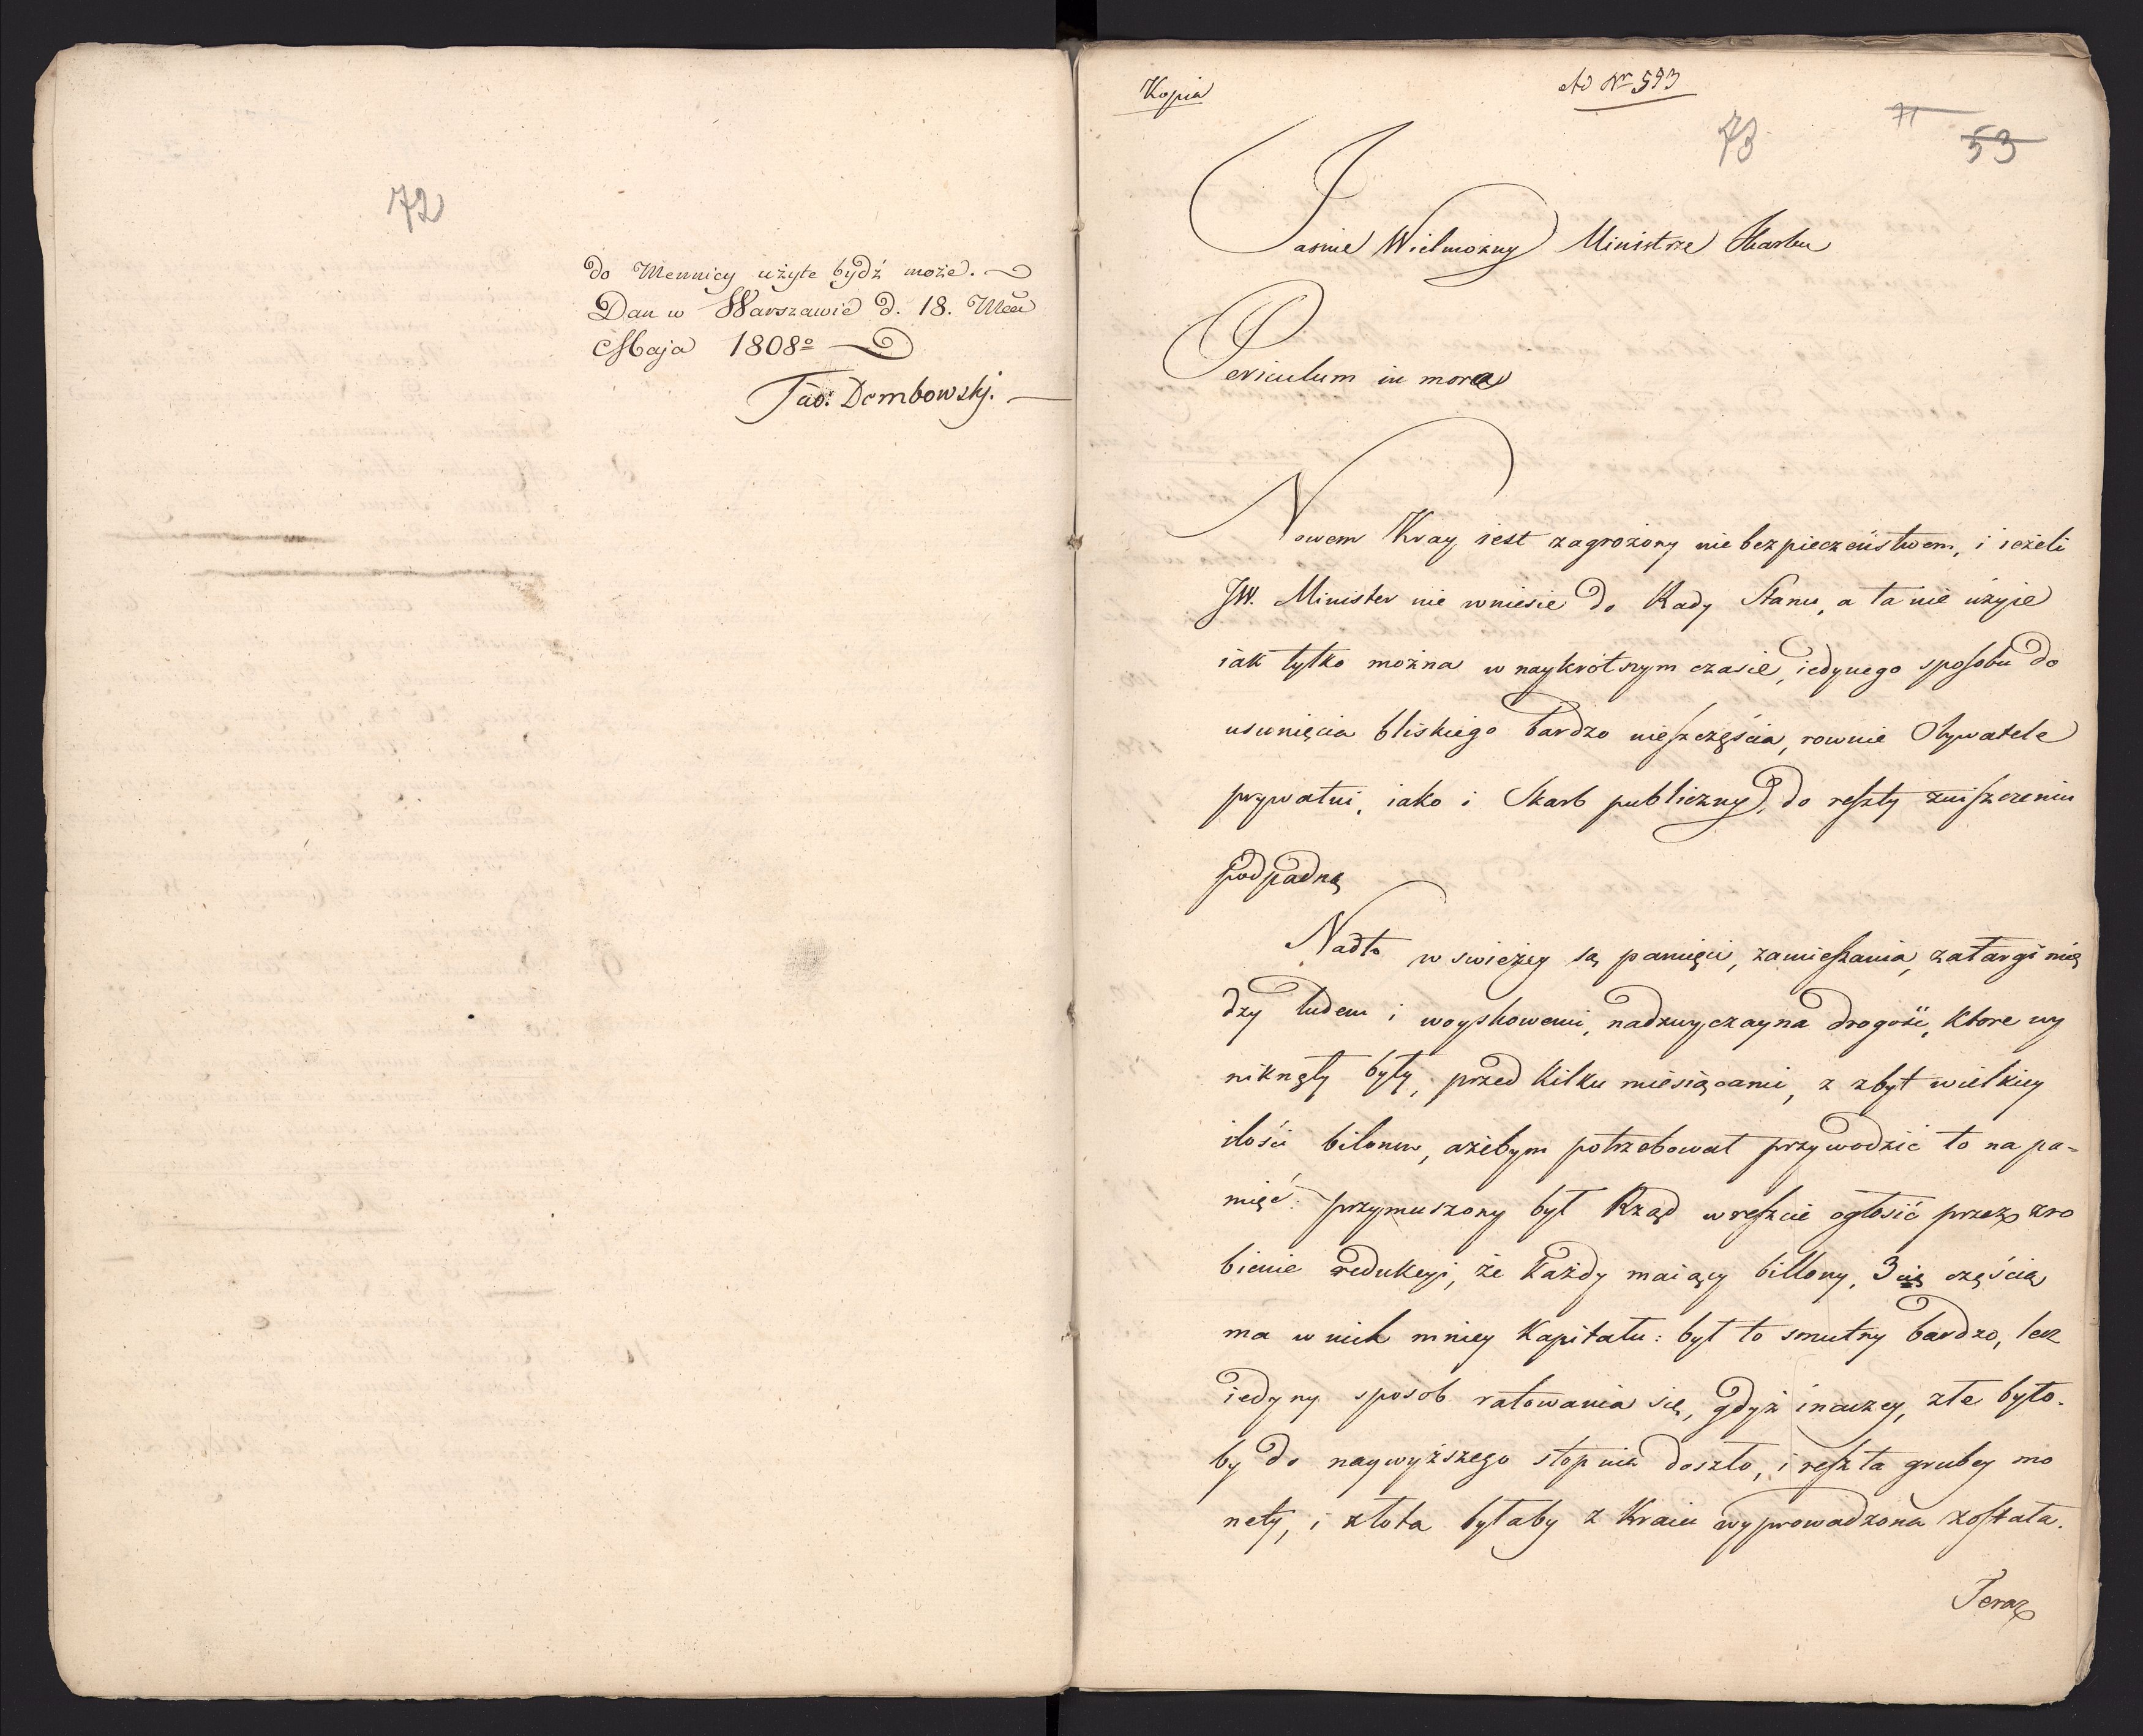 72
do Mennicy użyte bydź może.
Dan w Warszawie d. 18. Mca
Maja 1808º
Tad: Dembowskj.
Kopia
Ad Nr 593
73
71
53
Jaśnie Wielmożny Ministrze Skarbu
Periculum in mora
Nowem Kray iest zagrożony niebezpieczeństwem, i ieżeli
JW. Minister nie wniesie do Rady Stanu, a ta nie użyie
iak tylko można w naykrótszym czasie, iedynego sposobu do
usunięcia bliskiego bardzo nieszczęścia, rownie Obywatele
prywatni, iako i Skarb publiczny, do reszty zniszczeniu
podpadną
Nadto w swieżey są pamięci, zamieszania, zatargi mię
dzy ludem i woyskowemi, nadzwyczayna drogość, ktore wy
niknęły były, przed kilku miesiącami, z zbyt wielkiey
ilości bilonu, ażebym potrzebował przywodzić to na pa-
mięć: przymuszony był Rząd wreszcie ogłosić przez zro
bienie redukcyi, że każdy maiący billony, 3cią częścią
ma w nich mniey kapitału: był to smutny bardzo, lecz
iedyny sposob ratowania się, gdyż inaczey, złe było-
by do naywyższego stopnia doszło, i reszta grubey mo
nety, i złota byłaby z Kraiu wyprowadzona została.
Teraz